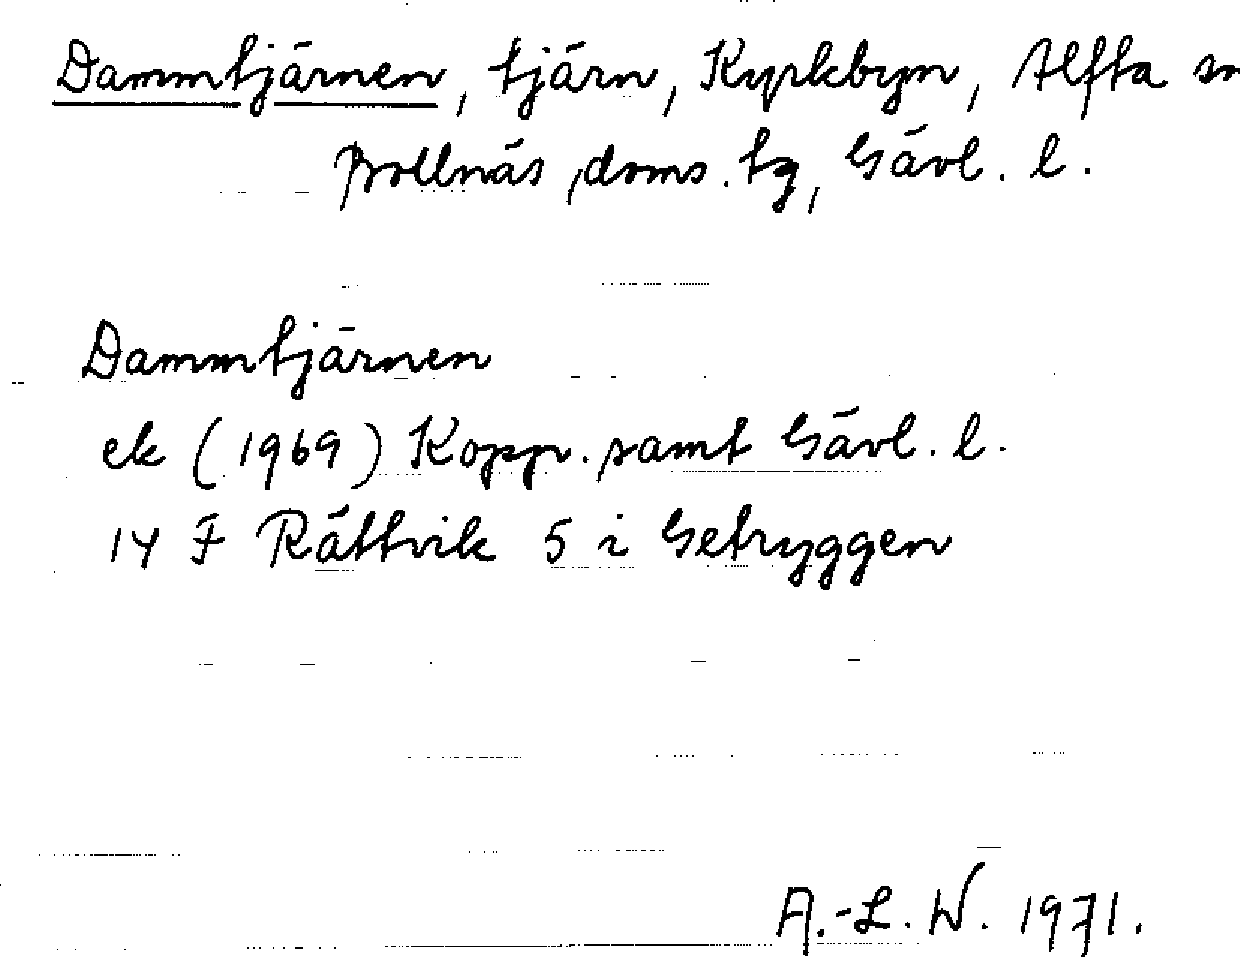 Dammtjärnen, tjärn, Kyrkbyn, Alfta sn
Bollnäs doms. tg, Gävl. l.
Dammtjärnen
ek (1969) Kopp. samt Gävl. l.
14 F Rättvik 5 i Getryggen
A.-L. W. 1971.